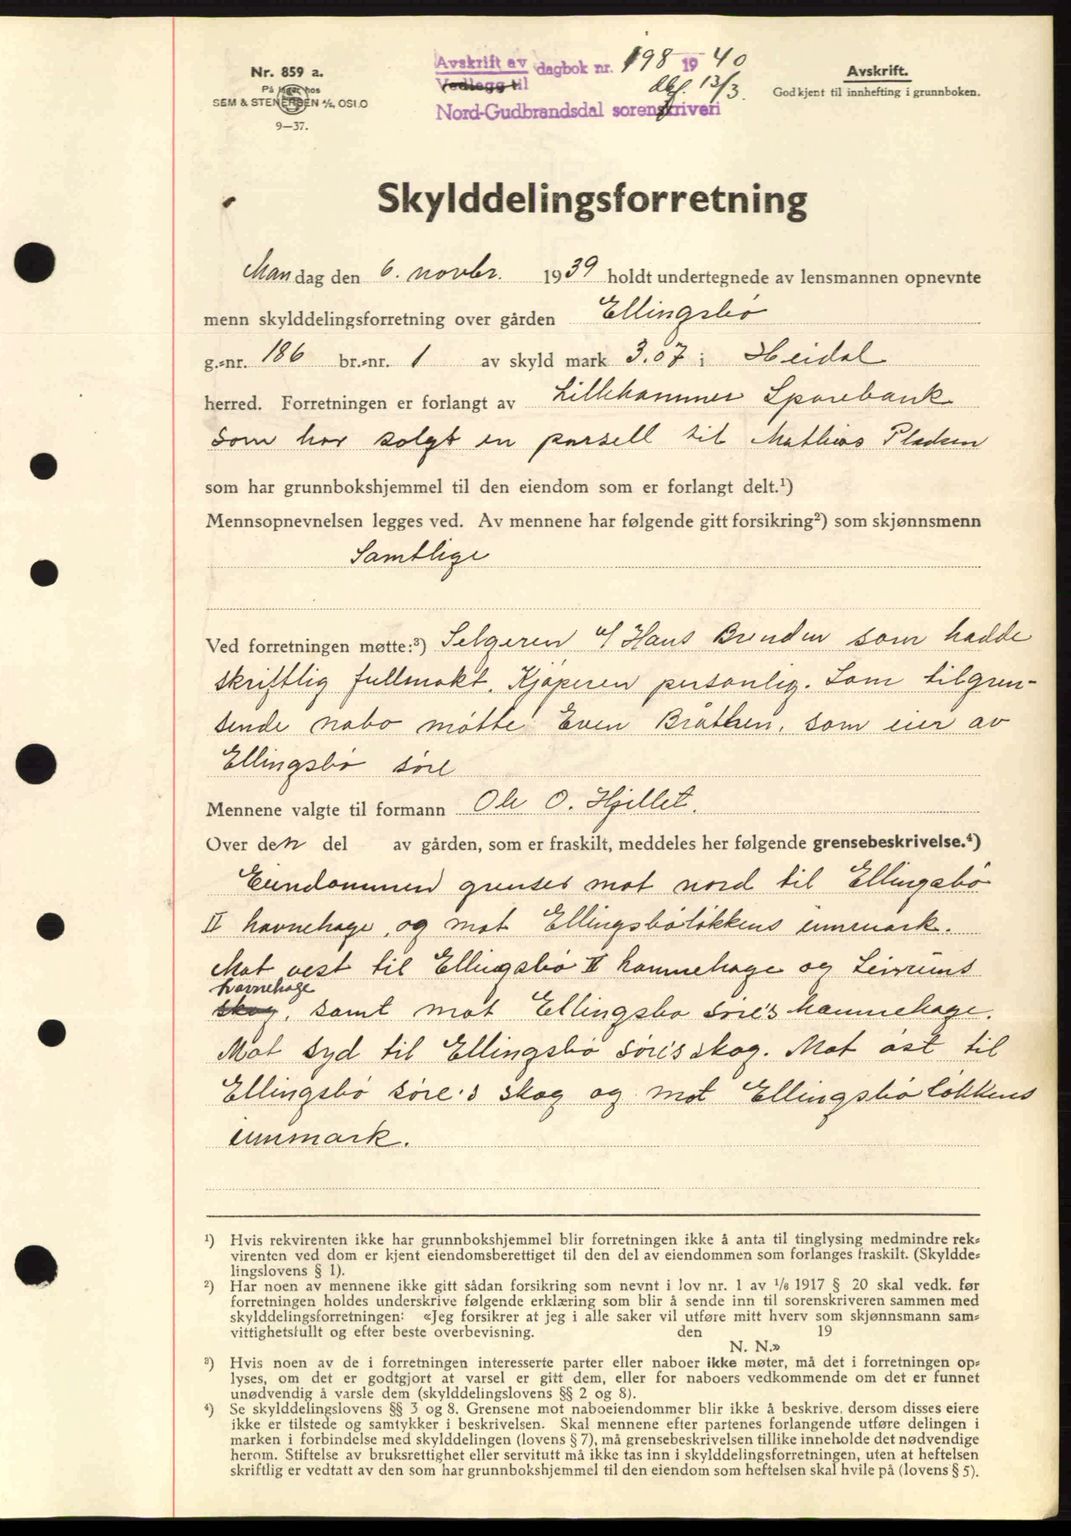 Nr. 859 a.
På lager hos
SEM & STENERSEN A/S, OSLO
9—37.
Avskrift av dagbok nr. 198 1940
Vedlegg til dbf. 13/3.
Nord-Gudbrandsdal sorenskriveri
Avskrift.
Godkjent til innhefting i grunnboken.
Skylddelingsforretning
Mandag den 6. novbr. 1939 holdt undertegnede av lensmannen opnevnte
menn skylddelingsforretning over gården Ellingsbø
g.-nr. 186 br.-nr. 1 av skyld mark 3.07 i Heidal
herred. Forretningen er forlangt av Lillehammer Sparebank
som har solgt en parsell til Mathias Pladsen
som har grunnbokshjemmel til den eiendom som er forlangt delt.¹)
Mennsopnevnelsen legges ved. Av mennene har følgende gitt forsikring²) som skjønnsmenn
Samtlige
Ved forretningen møtte:³) Selgeren v/ Hans Brenden som hadde
skriftlig fullmakt. Kjøperen personlig. Som tilgren-
sende nabo møtte Even Bråthen, som eier av
Ellingsbø søre
Mennene valgte til formann Ole O. Hjellet.
Over den del av gården, som er fraskilt, meddeles her følgende grensebeskrivelse.⁴)
Eiendommen grenser mot nord til Ellingsbø
II havnehage, og mot Ellingsbøløkkens innmark.
Mot vest til Ellingsbø II hamnehage og Leirums
havnehage
skog, samt mot Ellingsbø søre's hamnehage.
Mot syd til Ellingsbø søre's skog. Mot øst til
Ellingsbø søre's skog og mot Ellingsbøløkkens
innmark.
¹) Hvis rekvirenten ikke har grunnbokshjemmel blir forretningen ikke å anta til tinglysing medmindre rek-
virenten ved dom er kjent eiendomsberettiget til den del av eiendommen som forlanges fraskilt. (Skyldde-
lingslovens § 1).
²) Har noen av mennene ikke gitt sådan forsikring som nevnt i lov nr. 1 av 1/6 1917 § 20 skal vedk. før
forretningen holdes underskrive følgende erklæring som blir å sende inn til sorenskriveren sammen med
skylddelingsforretningen: «Jeg forsikrer at jeg i alle saker vil utføre mitt hverv som skjønnsmann sam-
vittighetsfullt og efter beste overbevisning. den 19
N. N.»
³) Hvis noen av de i forretningen interesserte parter eller naboer ikke møter, må det i forretningen op-
lyses, om det er godtgjort at varsel er gitt dem, eller for naboers vedkommende om det er funnet
unødvendig å varsle dem (skylddelingslovens §§ 2 og 8).
⁴) Se skylddelingslovens §§ 3 og 8. Grensene mot naboeiendommer blir ikke å beskrive, dersom disses eiere
ikke er tilstede og samtykker i beskrivelsen. Skal mennene efter partenes forlangende utføre delingen i
marken i forbindelse med skylddelingen (lovens § 7), må grensebeskrivelsen tillike inneholde det nødvendige
herom. Stiftelse av bruksrettighet eller servitutt må ikke tas inn i skylddelingsforretningen, uten at heftelsen
skriftlig er vedtatt av den som har grunnbokshjemmel til den eiendom som heftelsen skal hvile på (lovens § 5).